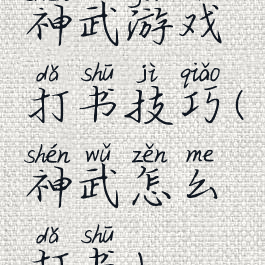 神武游戏
dǎ shū jì qiǎo
打书技巧(
shén wǔ zěn me
神武怎么
dǎ shū
打书)